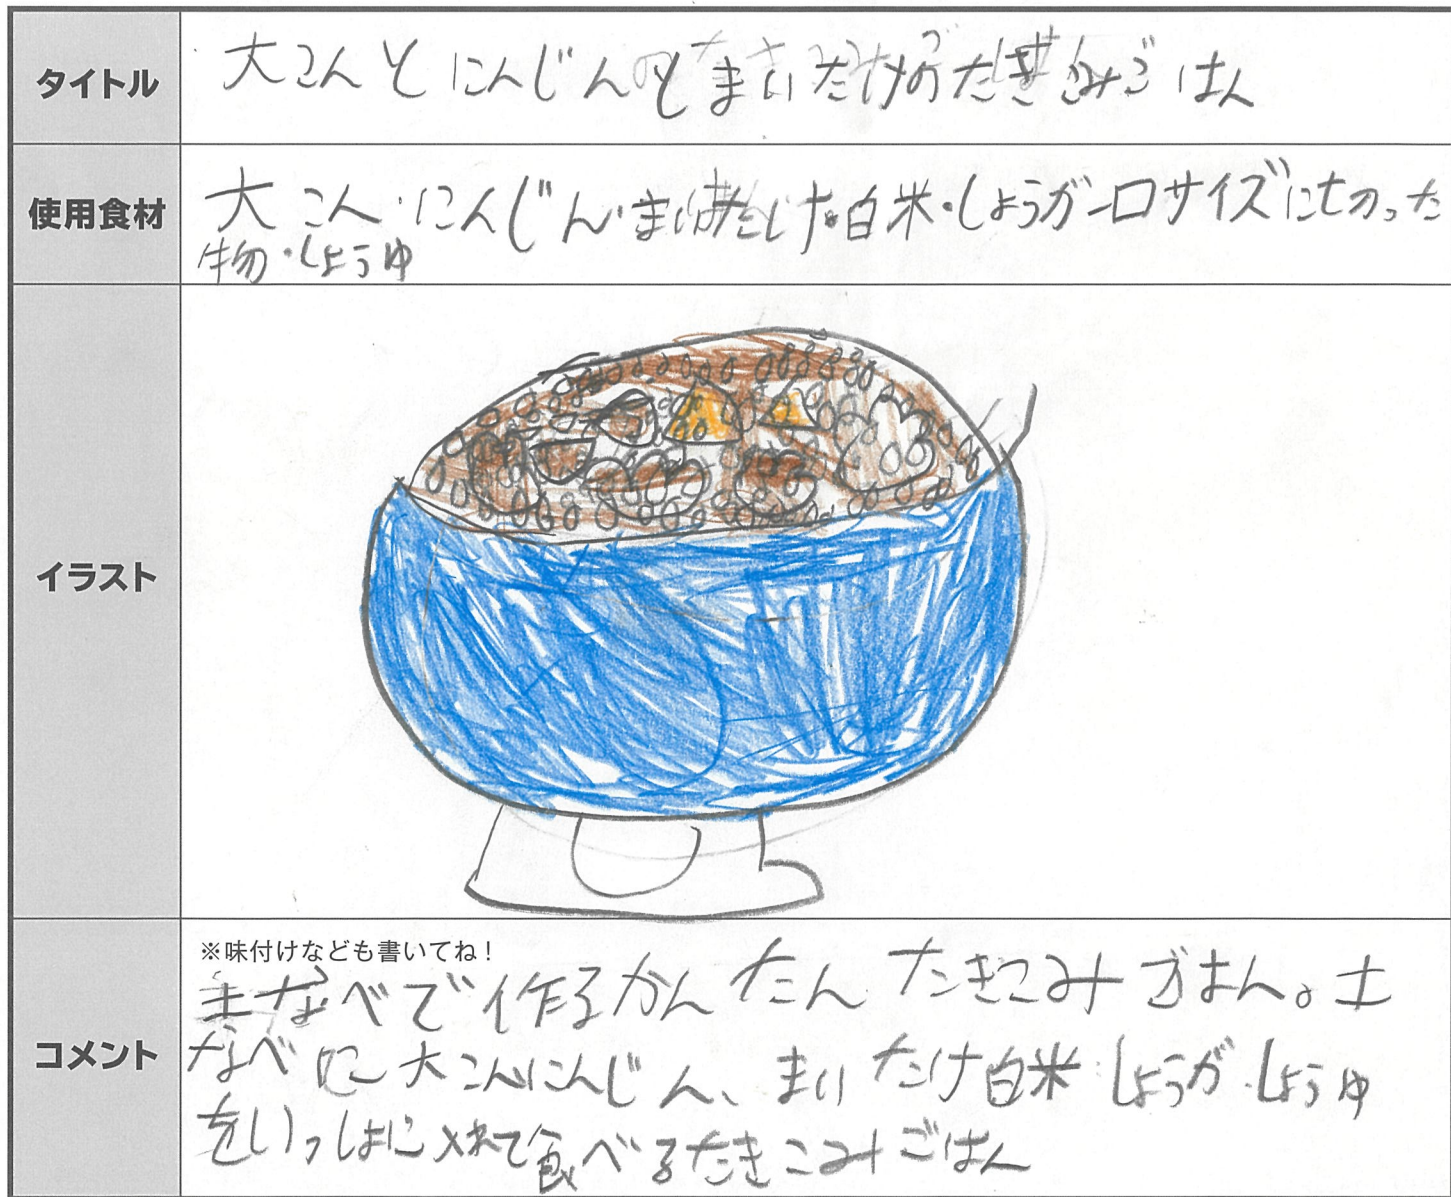 タイトル
大こんとにんじんとまいたけのたきこみごはん
使用食材
大こん・にんじん・まいたけ・白米・しょうが一口サイズに切った
物・しょうゆ
イラスト
コメント
※味付けなども書いてね!
土なべで作るかんたんたきこみごはん。土
なべに大こんにんじん、まいたけ白米しょうが.しょうゆ
をいっしょに入れて食べるたきこみごはん